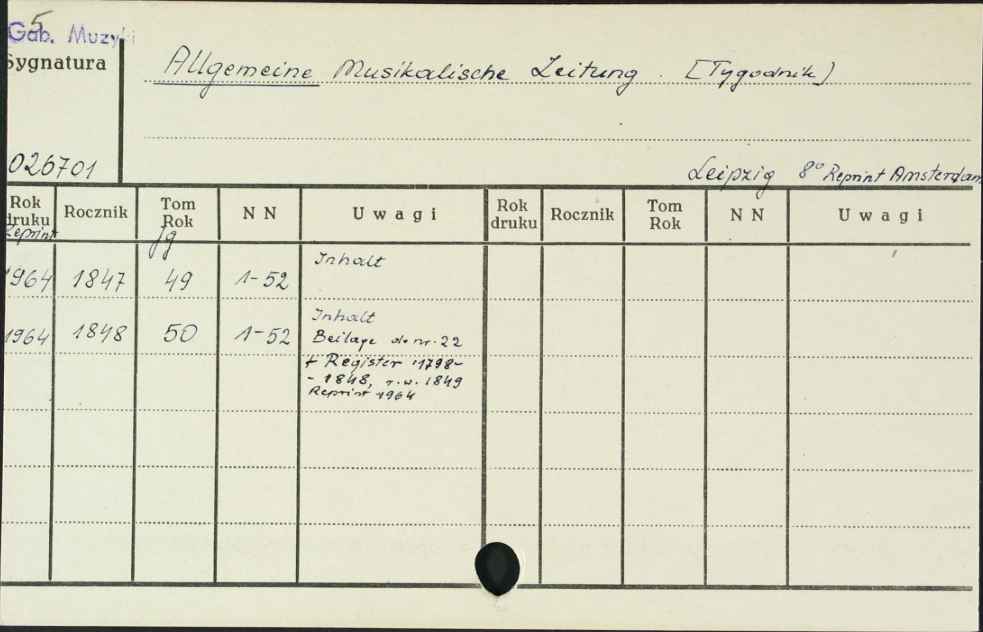 5
Gab. Muzyki
Sygnatura
Allgemeine Musikalische Zeitung. [Tygodnik]
026701
Leipzig 8° Reprint Amsterdam
Rok druku Rocznik Tom Rok N N Uwagi Rok druku Rocznik Tom Rok N N Uwagi
Reprint Jg
1964 1847 49 1-52 Inhalt
1964 1848 50 1-52 Inhalt
Beilage do nr. 22
+ Register 1798-
- 1848, r.w. 1849
Reprint 1964